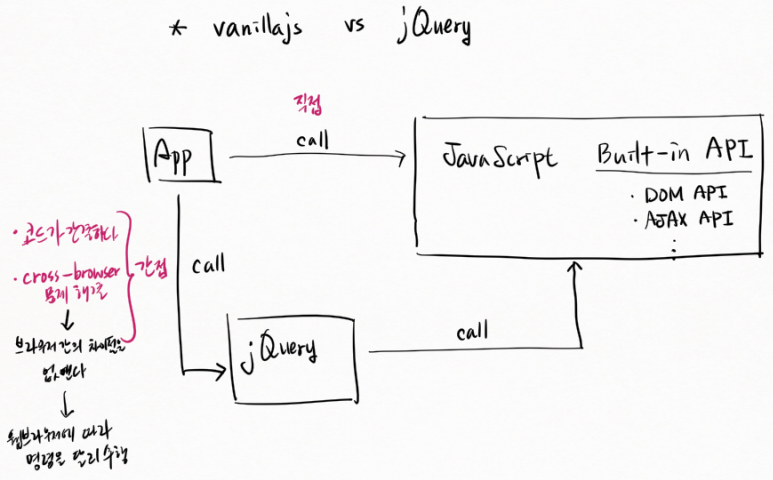 * vanillajs vs jQuery
직접
call
App
JavaScript
Built-in API
· DOM API
· AJAX API
· 코드가 간결하다
· cross-browser
문제 해결
간접
call
브라우저 간의 차이점을
없앤다
jQuery
call
웹브라우저에 따라
명령을 달리 수행